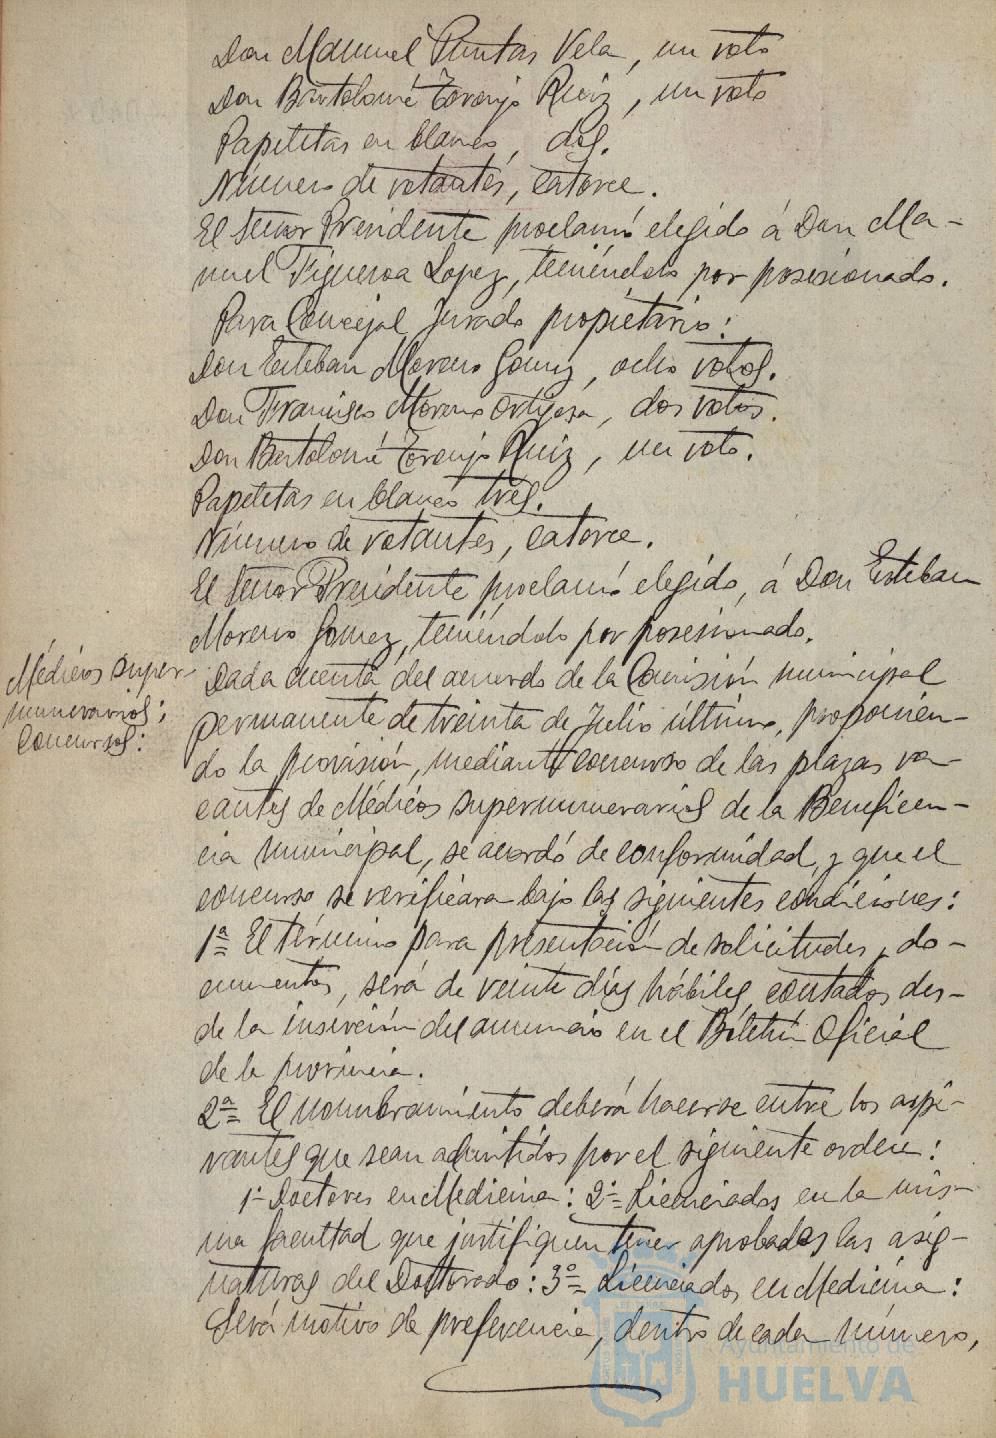 Don Manuel Puntas Vela, un voto
Don Bartolomé Toronjo Ruiz, un voto
Papeletas en blanco, dos.
Número de votantes, catorce.
El Señor Presidente proclamó elegido á Don Ma-
nuel Figueroa Lopez, teniéndolo por posesionado.
Para Concejal Jurado propietario:
Don Esteban Moreno Gomez, ocho votos.
Don Francisco Moreno Ortigosa, dos votos.
Don Bartolomé Toronjo Ruiz, un voto.
Papeletas en blanco tres.
Número de votantes, catorce.
El Señor Presidente proclamó elegido, á Don Esteban
Moreno Gomez, teniéndolo por posesionado.
Médicos super-
numerarios;
Concursos:
Dada cuenta del acuerdo de la Comisión municipal
permanente de treinta de Julio último, proponien-
do la provisión, mediante concurso de las plazas va-
cantes de Médicos supernumerarios de la Beneficen-
cia municipal, se acordó de conformidad, y que el
concurso se verificara bajo las siguientes condiciones:
1ª El término para presentación de solicitudes y do-
cumentos, será de veinte días hábiles, contados des-
de la inserción del anuncio en el Boletín Oficial
de la provincia.
2ª El nombramiento deberá hacerse entre los aspi-
rantes que sean admitidos por el siguiente orden:
1º Doctores en Medicina: 2º Licenciados en la mis-
ma facultad que justifiquen tener aprobadas las asig-
naturas del Doctorado: 3º Licenciados en Medicina:
Será motivo de preferencia, dentro de cada número,
Ayuntamiento de
HUELVA